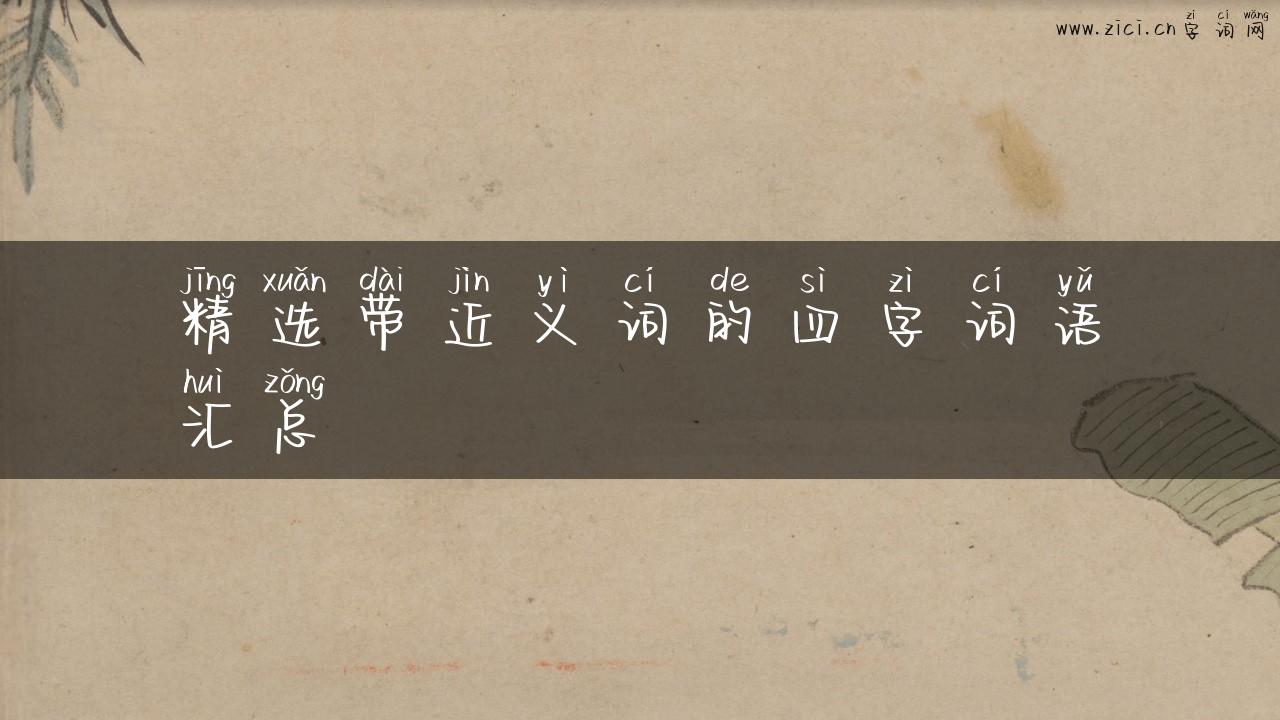 zì cí wǎng
www.zici.cn 字词网
jīng xuǎn dài jìn yì cí de sì zì cí yǔ
精选带近义词的四字词语
huì zǒng
汇总